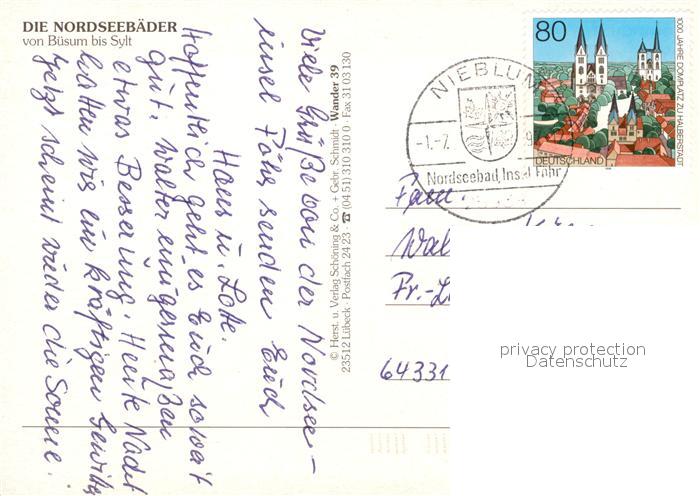 DIE NORDSEEBÄDER
von Büsum bis Sylt
Viele Grüße von der Nordsee-
insel Föhr senden Euch
Hans u. Lotte.
Hoffentlich geht es Euch soweit
gut, Walter einigermaßen
etwas Besserung. Heute Nacht
hatten wir ein kräftigen Gewitter
Jetzt scheint wieder die Sonne.
© Herst. u. Verlag Schöning & Co. + Gebr. Schmidt · Wander 39
23512 Lübeck · Postfach 24 23 · ☎ (04 51) 310 310 0 · Fax 31 03 130
80
1000 JAHRE DOMPLATZ ZU HALBERSTADT
DEUTSCHLAND
NIEBLUM
-1.-7.
9
Nordseebad Insel Föhr
Fam.
Wal
Fr.-L
64331
privacy protection
Datenschutz